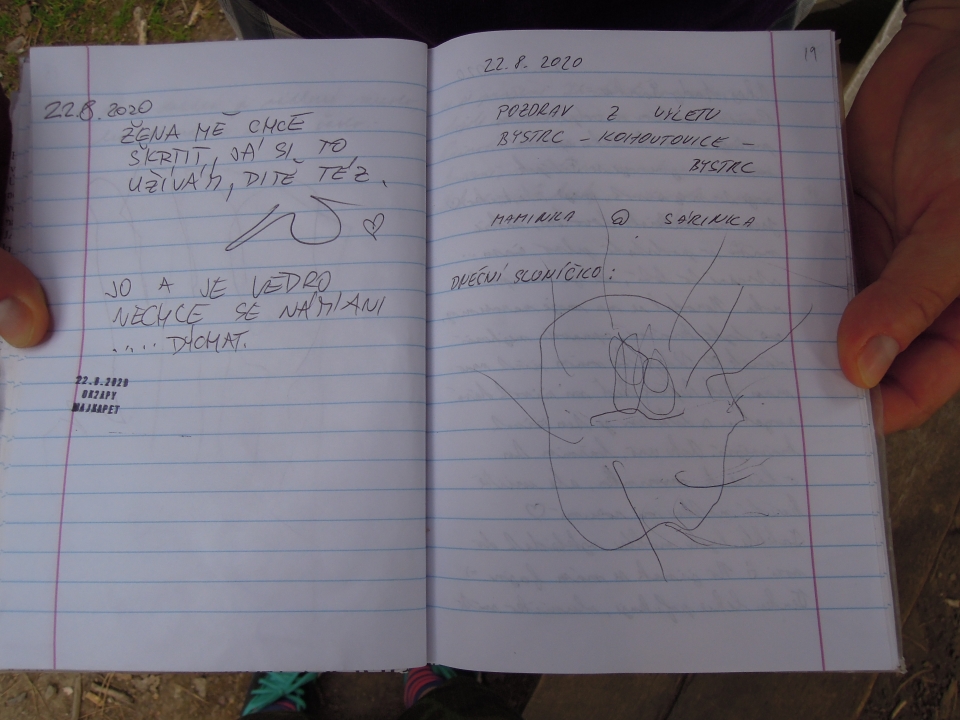 22.8.2020
ŽENA MĚ CHCE
ŠKRTIT, JÁ SI TO
UŽÍVÁM, DÍTĚ TÉŽ.
JO A JE VEDRO
NECHCE SE NÁM ANI
..... DÝCHAT.
22.8.2020
OKZAPY
MAJKAPET
19
22. 8. 2020
POZDRAV Z VÝLETU
BYSTRC - KOHOUTOVICE -
BYSTRC
MAMINKA @ SÁRINKA
DNEČNÍ SLUNÍČKO: